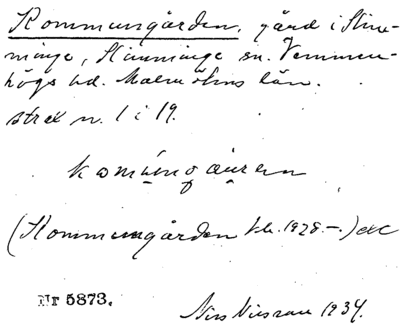 Kommungården, gård i Stine-
minge, Stimminge sn. Vemmen-
högs hd. Malmöhus län.
strax n. 1 i 19.
komungåuren
(Kommungården bl. 1928.-.) exc
Nr 5873.
Nils Nilsson 1934.